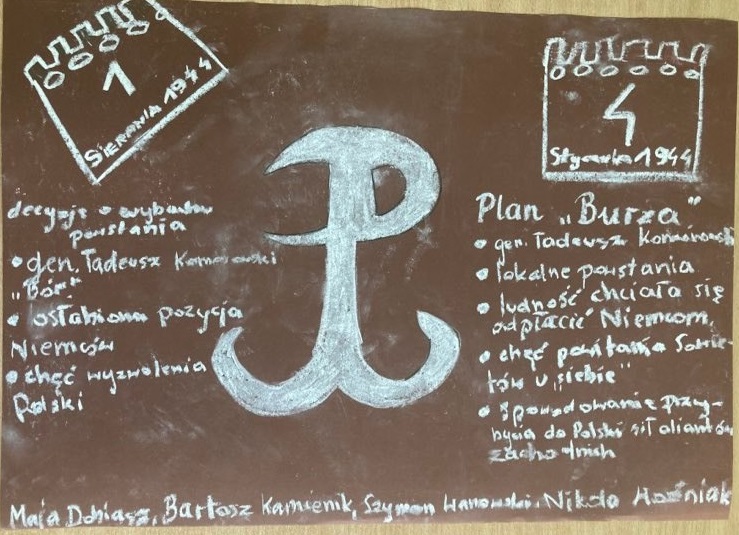 1
SIERPNIA 1944
decyzje o wybuchu
powstania
• gen. Tadeusz Komorowski
"Bór"
• osłabiona pozycja
Niemców
• chęć wyzwolenia
Polski
4
Stycznia 1944
Plan „Burza"
• gen. Tadeusz Komorowski
• lokalne powstania
• ludność chciała się
odpłacić Niemcom,
• chęć powitania Sowie-
tów u „siebie"
• spowodowanie przy-
bycia do Polski sił aliantów
zachodnich
Maja Dobiasz, Bartosz Kamienik, Szymon Nikola Woźniak